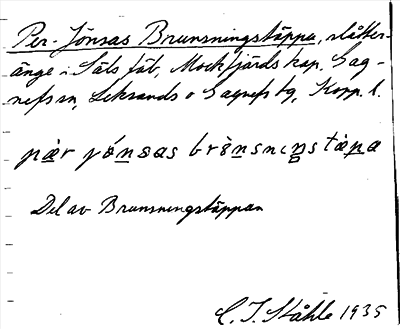 Per-Jönsas Brunsningstäppa, slåtter-
änge i Säls fåb, Mockfjärds kap, Gag-
nefs sn, Leksands o Gagnefs tg, Kopp. l.
pær jónsas brsnsnıŋs tæpa
Del av Brunsningstäppan
C. I. Ståhle 1935